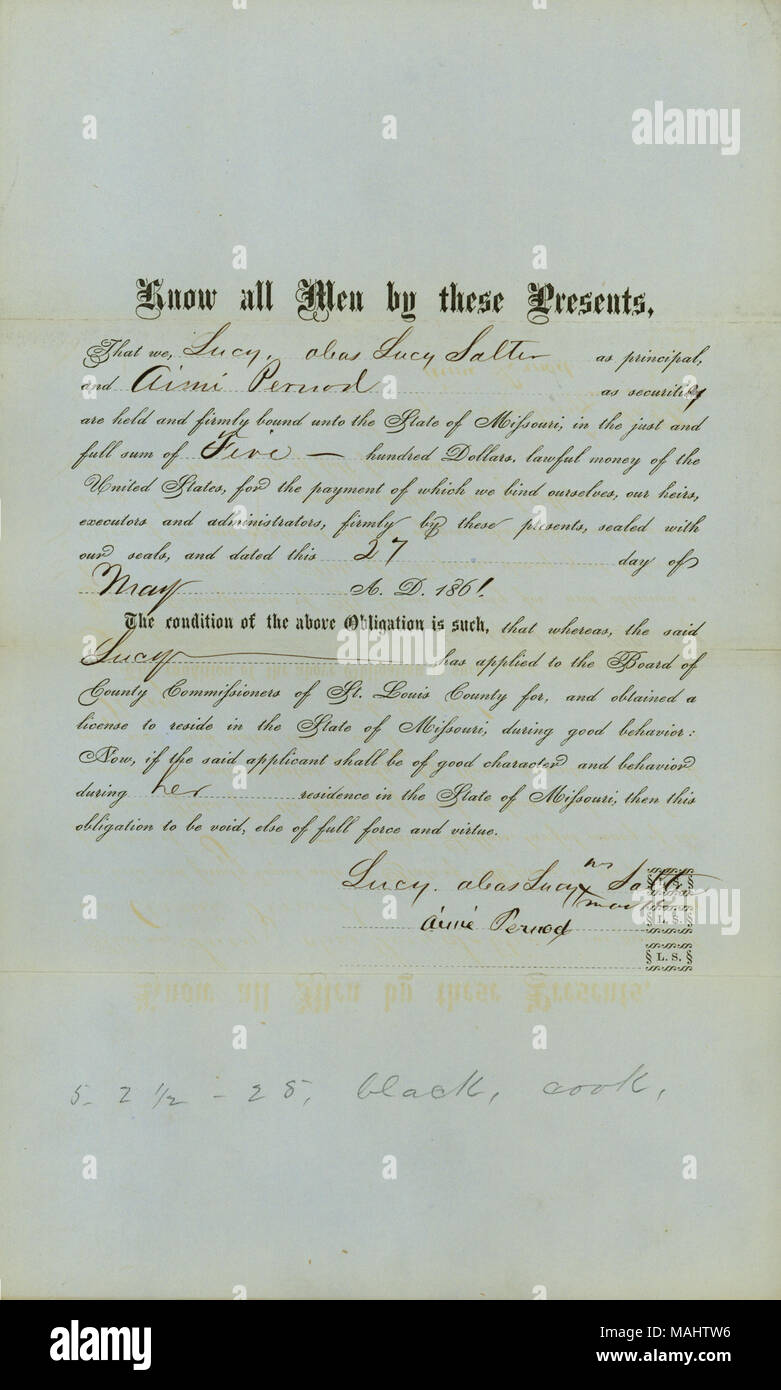 Know all Men by these Presents,
That we, Lucy, alias Lucy Salter as principal,
and Aimé Pernod as security
are held and firmly bound unto the State of Missouri, in the just and
full sum of Five — hundred Dollars, lawful money of the
United States, for the payment of which we bind ourselves, our heirs,
executors and administrators, firmly by these presents, sealed with
our seals, and dated this 27 day of
May A. D. 1861.
The condition of the above Obligation is such, that whereas, the said
Lucy has applied to the Board of
County Commissioners of St. Louis County for, and obtained a
license to reside in the State of Missouri, during good behavior:
Now, if the said applicant shall be of good character and behavior
during her residence in the State of Missouri, then this
obligation to be void, else of full force and virtue.
Lucy. alias Lucy x Salter
mark
Aimé Pernod L. S.
L. S.
5- 2 1/2 - 28, black, cook,
a alamy stock photo
alamy
Image ID: MAHTW6
www.alamy.com